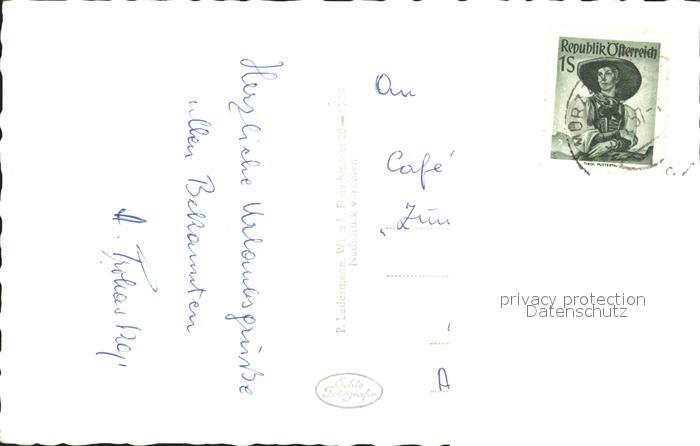 Herzliche Urlaubsgrüße
allen Bekannten
An
Café
„Zum
P. Ledermann, Wien I., Fleischmarkt 20
Nachdruck verboten
Echte
Fotografie
Republik Österreich
1S
TIROL PUSTERTAL
MÜRZ
privacy protection
Datenschutz